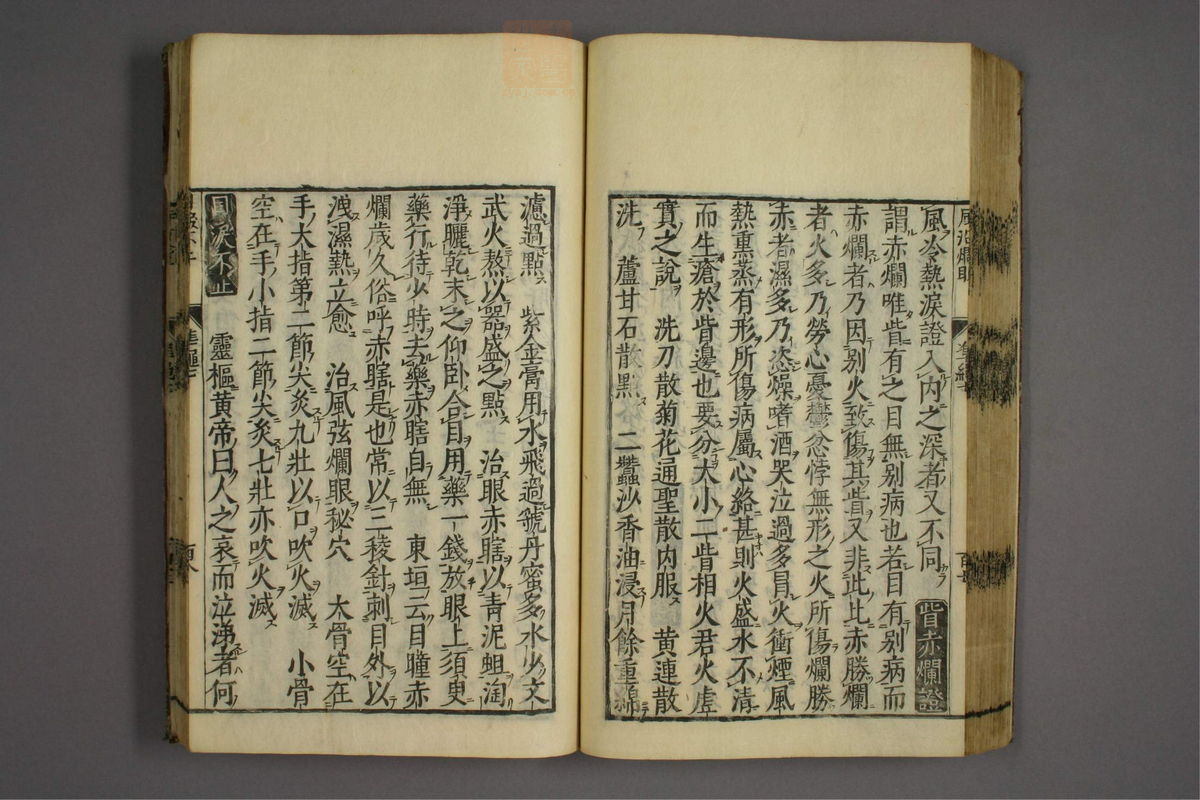 風冷熱淚證入内之深者又不同 眥赤爛證
謂赤爛唯眥有之目無别病也若目有别病而
赤爛者乃因别火致傷其眥又非此比赤勝爛
者火多乃勞心憂鬱忿悖無形之火所傷爛勝
赤者濕多乃恣燥嗜酒哭泣過多冒火衝煙風
熱熏蒸有形所傷病屬心絡甚則火盛水不清
而生瘡於眥邊也要分大小二眥相火君火虛
實之說 洗刀散菊花通聖散内服 黄連散
洗 蘆甘石散點 二蠶沙香油浸月餘重綿
濾過點 紫金膏用水飛過虢丹蜜多水少文
武火熬以器盛之點 治眼赤瞎以青泥蛆淘
淨曬乾末之仰卧合目用藥一錢放眼上須臾
藥行待少時去藥赤瞎自無 東垣云目瞳赤
爛歲久俗呼赤瞎是也常以三稜針刺目外以
洩濕熱立愈 治風弦爛眼秘穴 大骨空在
手大指第二節尖灸九壯以口吹火滅 小骨
空在手小指二節尖灸七壯亦吹火滅
目淚不止 靈樞黄帝曰人之哀而泣涕者何